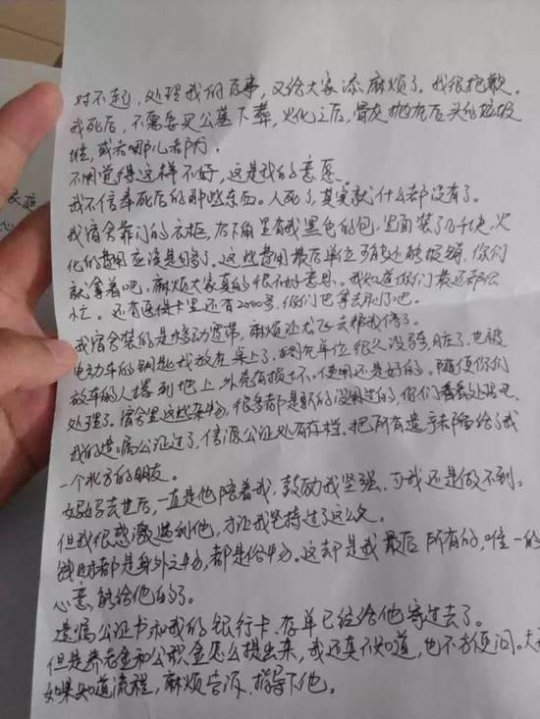 对不起，处理我的后事，又给大家添麻烦了。我很抱歉。
我死后，不需要买公墓下葬，火化之后，骨灰抛在后头的垃圾
堆，或者哪儿都行。
不用觉得这样不好，这是我的意愿。
我不信奉死后的那些东西。人死了，其实就什么都没有了。
我宿舍靠门的衣柜，右下角里有我黑色的包，里面装了几千块，火
化的费用应该是够了。这些费用最后单位可能还能报销，你们
就拿着吧，麻烦大家真的很不好意思。我知道你们最近都很
忙。还有医保卡里还有2000多，你们也拿去用了吧。
我宿舍装的是移动宽带，麻烦过去帮我停了。
电动车的钥匙我放在桌上了，停在单位很久没骑，脏了，也被
放车的人撂到地上，外壳有损坏，使用还是好的。随便你们
处理了。宿舍里这些杂物，很多都是新的没用过的，你们看着处理吧。
我的遗嘱公证过了，信源公证处有存档。把所有遗产未留给了我
一个北方的朋友。
妈妈去世后，一直是他陪着我，鼓励我坚强，可我还是做不到。
但我很感激遇到他，才让我坚持过了这么久。
钱财都是身外之物，都是俗物。这却是我最后所有的，唯一的
心意能给他的了。
遗嘱公证书和我的银行卡、存单已经给他寄过去了。
但是养老金和公积金怎么提出来，我还真不知道，也不方便问。
如果知道流程，麻烦告诉、指导下他。